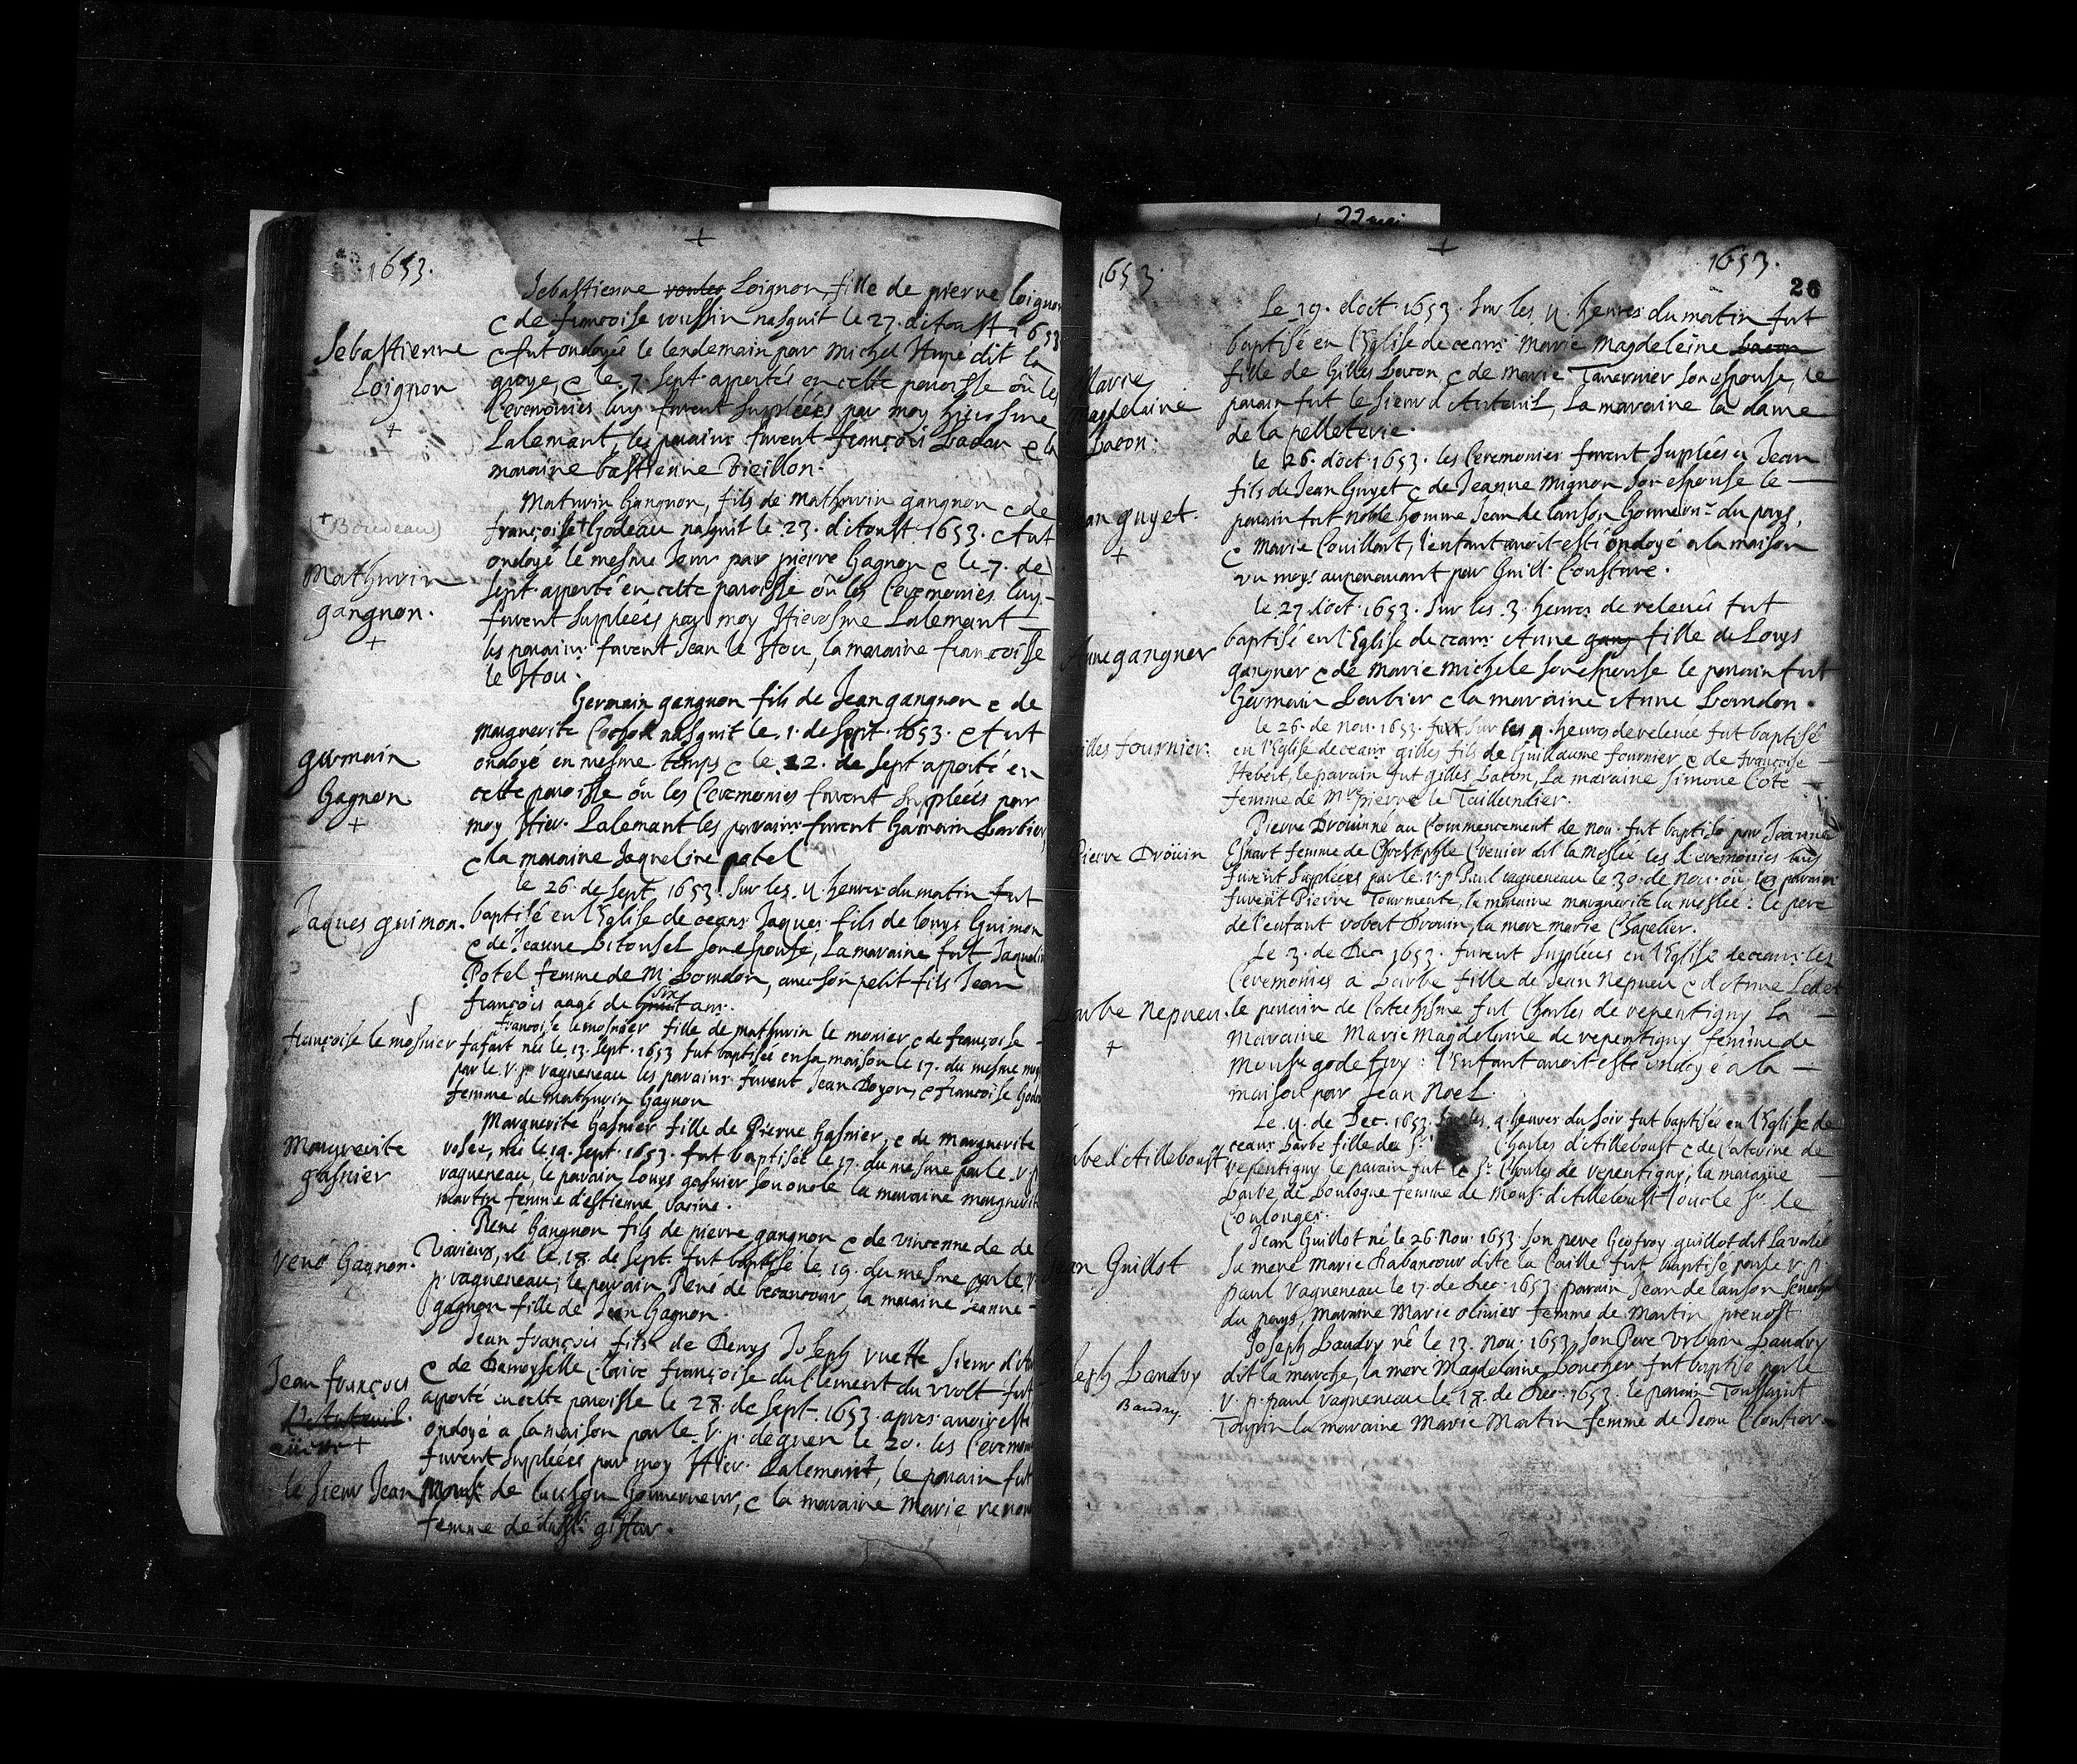 1653.
Sebastienne Loignon, fille de pierre loignon
Sebastienne
Loignon
+
c de francoise roussin nasquit le 27. d'Aoust 1653
c fut ondoyée le lendemain par Michel Hupé dit la
groye, c le 7. Sept. apportée en cette paroisse où les
Ceremonies luy furent suppléées par moy hierosme
Lalemant, les parains furent françois badau c la
maraine bastienne Vieillon.
(+ Boudeau)
Mathurin
gangnon.
+
Mathurin Gangnon, fils de mathurin gangnon c de
françoise + Godeau nasquit le 23. d'Aoust 1653. c fut
ondoyé le mesme Jour par pierre Gagnon c le 7. de
Sept. apporté en cette paroisse où les Ceremonies luy
furent suppléées par moy Hierosme Lalemant
les parains furent Jean le Hou, la maraine francoise
le Hou.
germain
Gagnon
+
Germain gangnon fils de Jean gangnon c de
marguerite Cochon nasquit le 1. de Sept. 1653. c fut
ondoyé en mesme temps c le 22. de Sept apporté en
cette paroisse où les Ceremonies furent suppléées par
moy Hier. Lalemant les parains furent Germain barbier,
c la maraine Jaqueline potel
Jaques guimon.
le 26. de Sept. 1653. Sur les 4. heures du matin fut
baptisé en l'Eglise de ceans Jaques fils de louys Guimon
c de Jeanne bitousel son espouse, La maraine fut Jaqueline
Potel femme de Mr. bourdon, avec son petit fils Jean
françois aagé de six ans.
françoise le mosnier
francoise le mosnier fille de mathurin le monier c de françoise
fafart née le 13. Sept. 1653 fut baptisée en sa maison le 17. du mesme moy
par le. r. p. ragueneau les parains furent Jean Doyon, c francoise
femme de Mathurin Gagnon
Marguerite
gasnier
Marguerite Gasnier fille de Pierre Gasnier, c de Marguerite
rosée, née le 14. Sept. 1653. fut baptisée le 17. du mesme par le r. p
ragueneau, le parain Louys gasnier son oncle la maraine marguerite
martin femme d'estienne racine.
René Gagnon.
René Gangnon fils de pierre gangnon c de vincenne de
Varieux, né le 18. de Sept. fut baptisé le 19. du mesme par le r.
p. ragueneau; le parain René de becancour, la maraine Jeanne
gagnon fille de Jean Gagnon.
Jean françois
d'Auteuil.
Jean françois fils de Denys Joseph ruette Sieur d'
c de Damoyselle claire françoise du Clement du Wolt fut
apporté en cette paroisse le 28. de Sept. 1653. apres avoir esté
ondoyé a la maison par le. r. p. dequen le 20. les
furent suppléées par moy Hier. Lalemant, le parain fut
le Sieur Jean de lauson Gouverneur, c la maraine Marie
femme de giffar.
22 mai
1653.
1653.
26
Marie
Magdelaine
bacon.
Le 19. d'oct. 1653. Sur les 4. heures du matin fut
baptisé en l'Eglise de ceans Marie Magdeleine bacon
fille de Gilles bacon, c de marie Tavernier son espouse, le
parain fut le Sieur d'Auteuil, La maraine la dame
de la pelleterie.
guyet
+
le 26. d'oct. 1653. les Ceremonies furent suplées a Jean
fils de Jean Guyet c de Jeanne Mignon son espouse le
parain fut noble homme Jean de lauson Gouvernr. du pays,
c marie Couillart, l'enfant avoit esté ondoyé a la maison
un moys auparavant par Guill. Cousture.
Anne gangner
le 27. d'oct. 1653. Sur les 3. heures de relevée fut
baptisé en l'Eglise de ceans Anne fille de Louys
gangner c de marie michele son espouse le parain fut
Germain barbier c la maraine Anne bourdon.
gilles fournier.
le 26. de nov. 1653. sur les 4. heures de relevée fut baptisé
en l'Eglise de ceans gilles fils de Guillaume fournier c de francoise
Hebert, le parain fut gilles bacon, La maraine Simone Coté
femme de Mre pierre le Taillandier.
Pierre Drouin
Pierre Drouin né au Commencement de nov. fut baptisé par Jeanne
Esnart femme de Christophle Crevier dit la Meslée les Ceremonies luy
furent supléées par le r. p. Paul ragueneau le 30. de nov. où les parains
furent Pierre Tourmente, la maraine marguerite la meslée : le pere
de l'enfant robert Drouin, la mere marie Chapelier.
barbe nepveu.
+
Le 3. de Dec. 1653. furent suppléées en l'Eglise de ceans les
Ceremonies a barbe fille de Jean nepveu c d'Anne Ledet
le parain de Catechisme fut Charles de repentigny La
Maraine Marie Magdelaine de repentigny femme de
Monsr. godefroy : l'enfant avoit esté ondoyé a la
maison par Jean Noel.
d'Ailleboust
Le 4. de Dec. 1653. sur les 9 heures du soir fut baptisée en l'Eglise de
ceans barbe fille de Sr. Charles d'Ailleboust c de Caterine de
repentigny le parain fut le Sr. Charles de repentigny; la maraine
barbe de boulogne femme de Mons. d'Ailleboust Louis Sr. de
Coulonges.
Guillot
Jean Guillot né le 26. nov. 1653. son pere Geofroy guillot dit Lavalée
Sa mere Marie d'abancour dite la Caille fut baptisé par le r. p.
paul ragueneau le 17. de dec. 1653. parain Jean de lauson Senechal
du pays, Maraine Marie olivier femme de Martin prevost
Joseph baudry
Baudry.
Joseph baudry né le 13. nov. 1653, son Pere Urbain baudry
dit la marche, la mere Magdelaine boucher fut baptisé par le
r. p. paul ragueneau le 18. de dec. 1653. le parain Toussaint
Toupin la maraine Marie Martin femme de Jean Cloutier.